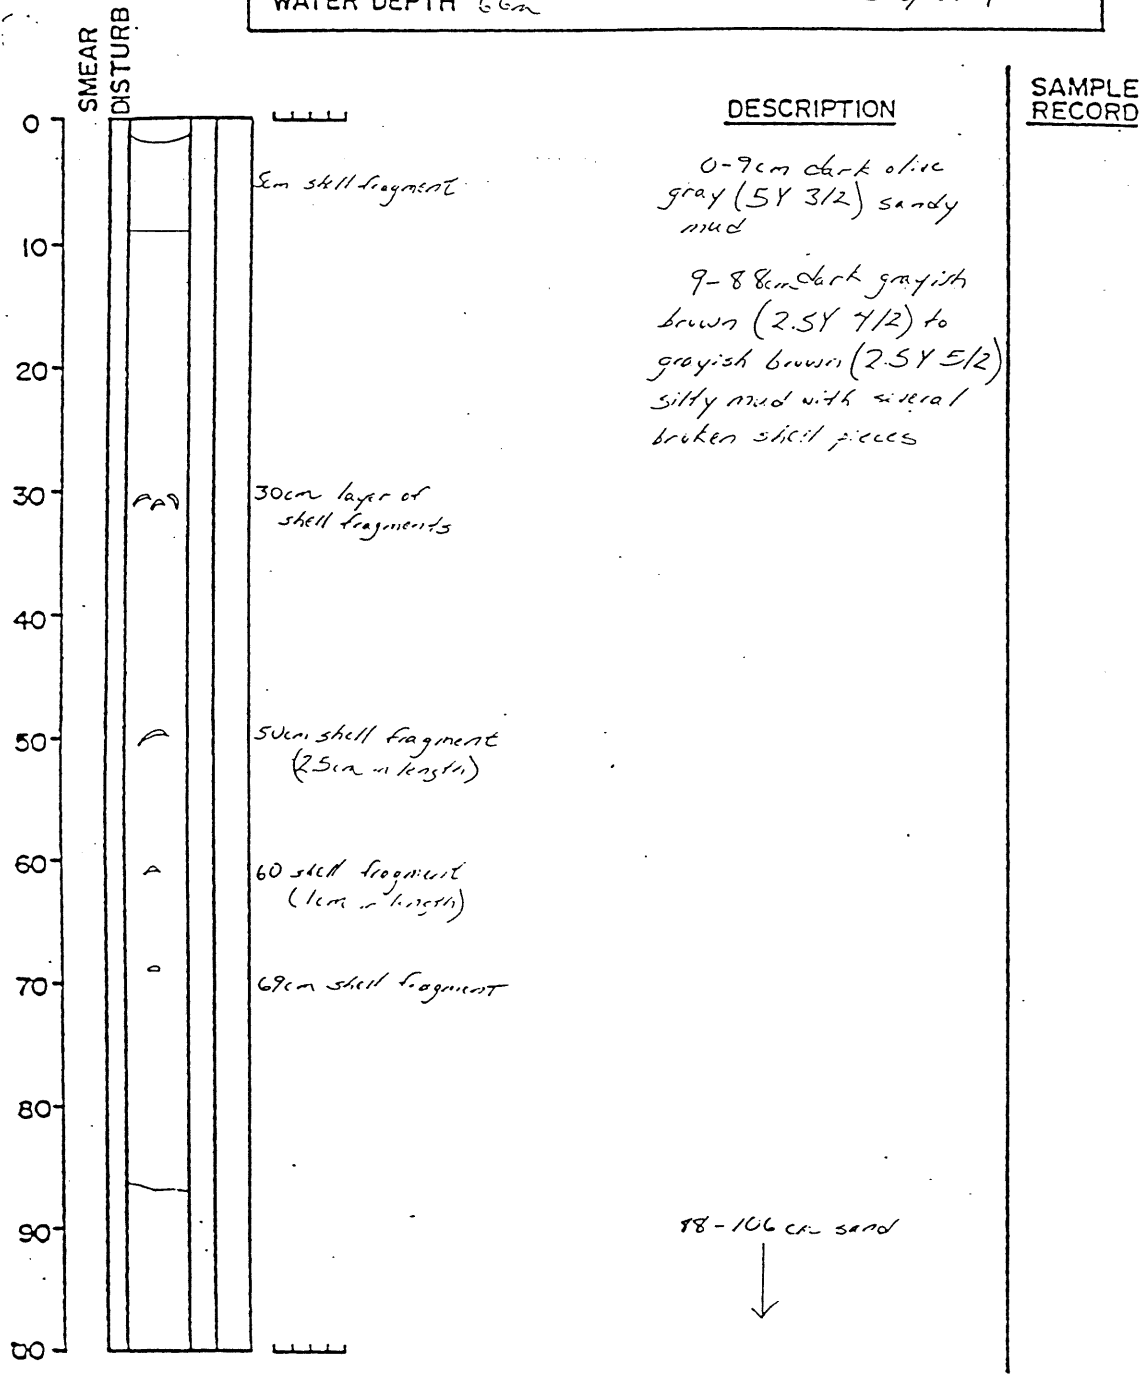 WATER DEPTH 66m
SMEAR
DISTURB
DESCRIPTION
SAMPLE
RECORD
0
10
20
30
40
50
60
70
80
90
00
5cm shell fragment
30cm layer of
shell fragments
50cm shell fragment
(2.5cm in length)
60 shell fragment
(1cm in length)
69cm shell fragment
0-9cm dark olive
gray (5Y 3/2) sandy
mud
9-88cm dark grayish
brown (2.5Y 4/2) to
grayish brown (2.5Y 5/2)
silty mud with several
broken shell pieces
88-106 cm sand